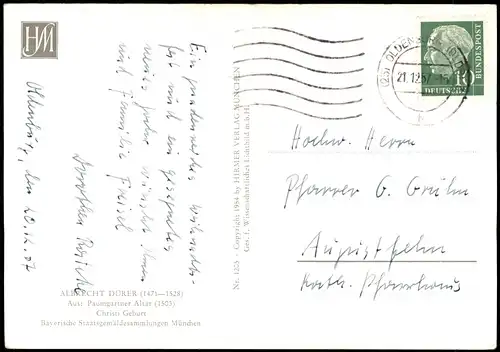 HM
Oldenburg, den 20.12.57
Ein gnadenreiches Weihnachts-
fest und ein gesegnetes
neues Jahr wünschen Ihnen
und Familie
Dorothea
ALBRECHT DÜRER (1471—1528)
Aus: Paumgartner Altar (1503)
Christi Geburt
Bayerische Staatsgemäldesammlungen München
Nr. 1255 · Copyright 1954 by HIRMER VERLAG MÜNCHEN
Ges. f. Wissenschaftliches Lichtbild m.b.H.
OLDENBURG (OLDB)
21.12.57
10
DEUTSCHE
BUNDESPOST
Hochw. Herrn
Pfarrer G. Grühn
Augustfehn
Kath. Pfarrhaus